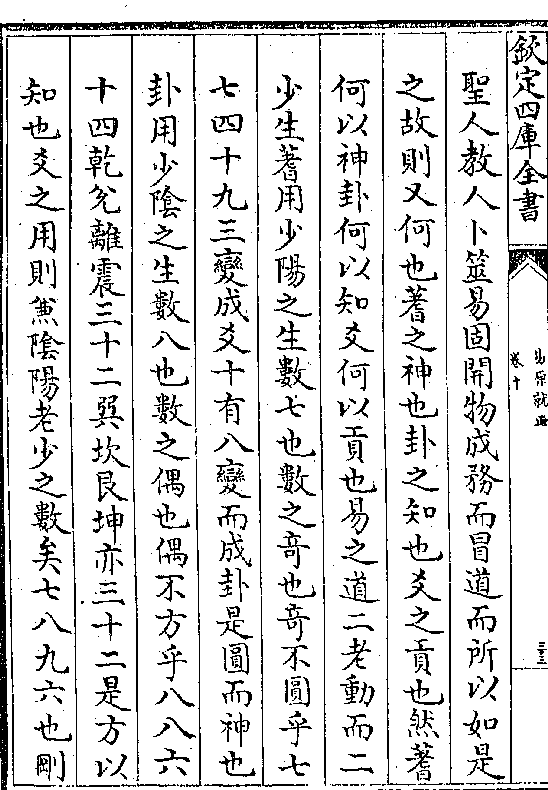 欽定四庫全書
卷十
聖人教人卜筮易固開物成務而冒道而所以如是
之故則又何也蓍之神也卦之知也爻之貢也然蓍
何以神卦何以知爻何以貢也易之道二老動而二
少生蓍用少陽之生數七也數之竒也竒不圓乎七
七四十九三變成爻十有八變而成卦是圓而神也
卦用少陰之生數八也數之偶也偶不方乎八八六
十四乾兊離震三十二巽坎艮坤亦三十二是方以
知也爻之用則兼陰陽老少之數矣七八九六也剛